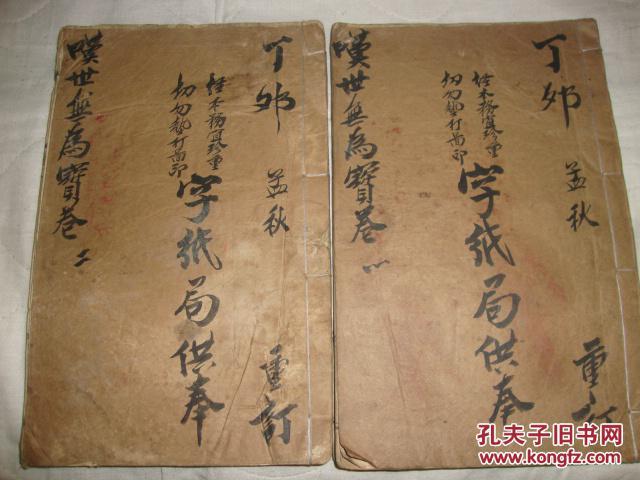 丁卯 孟秋 重訂
經本務宜珍重
切勿打啚印
字紙局供奉
嘆世無為寶卷 一
丁卯 孟秋 重訂
經本務宜珍重
切勿打啚印
字紙局供奉
嘆世無為寶卷 二
孔夫子旧书网
KONGFZ.COM